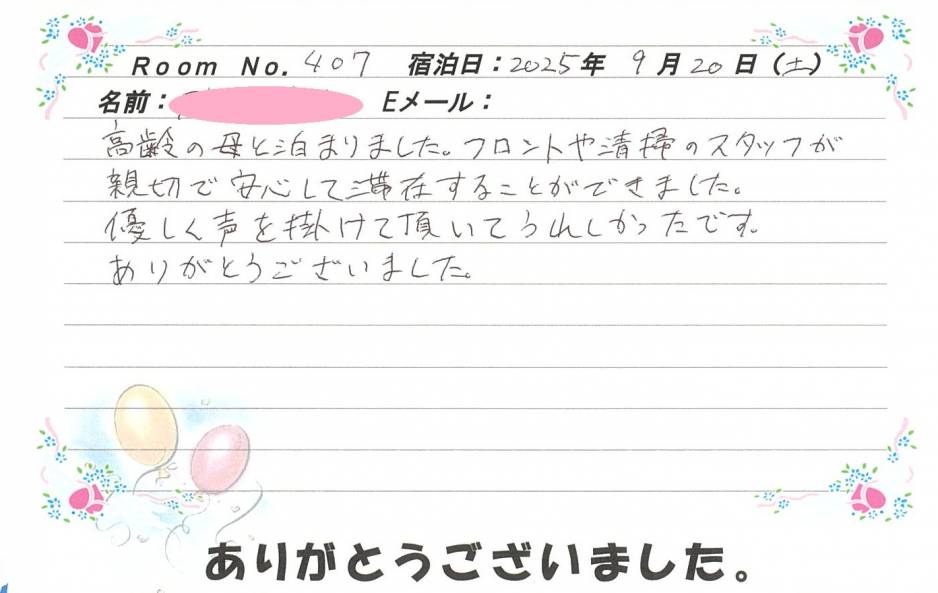 Room No. 407 宿泊日：2025年 9月20日（土）
名前： Eメール：
高齢の母と泊まりました。フロントや清掃のスタッフが
親切で安心して滞在することができました。
優しく声を掛けて頂いてうれしかったです。
ありがとうございました。
ありがとうございました。